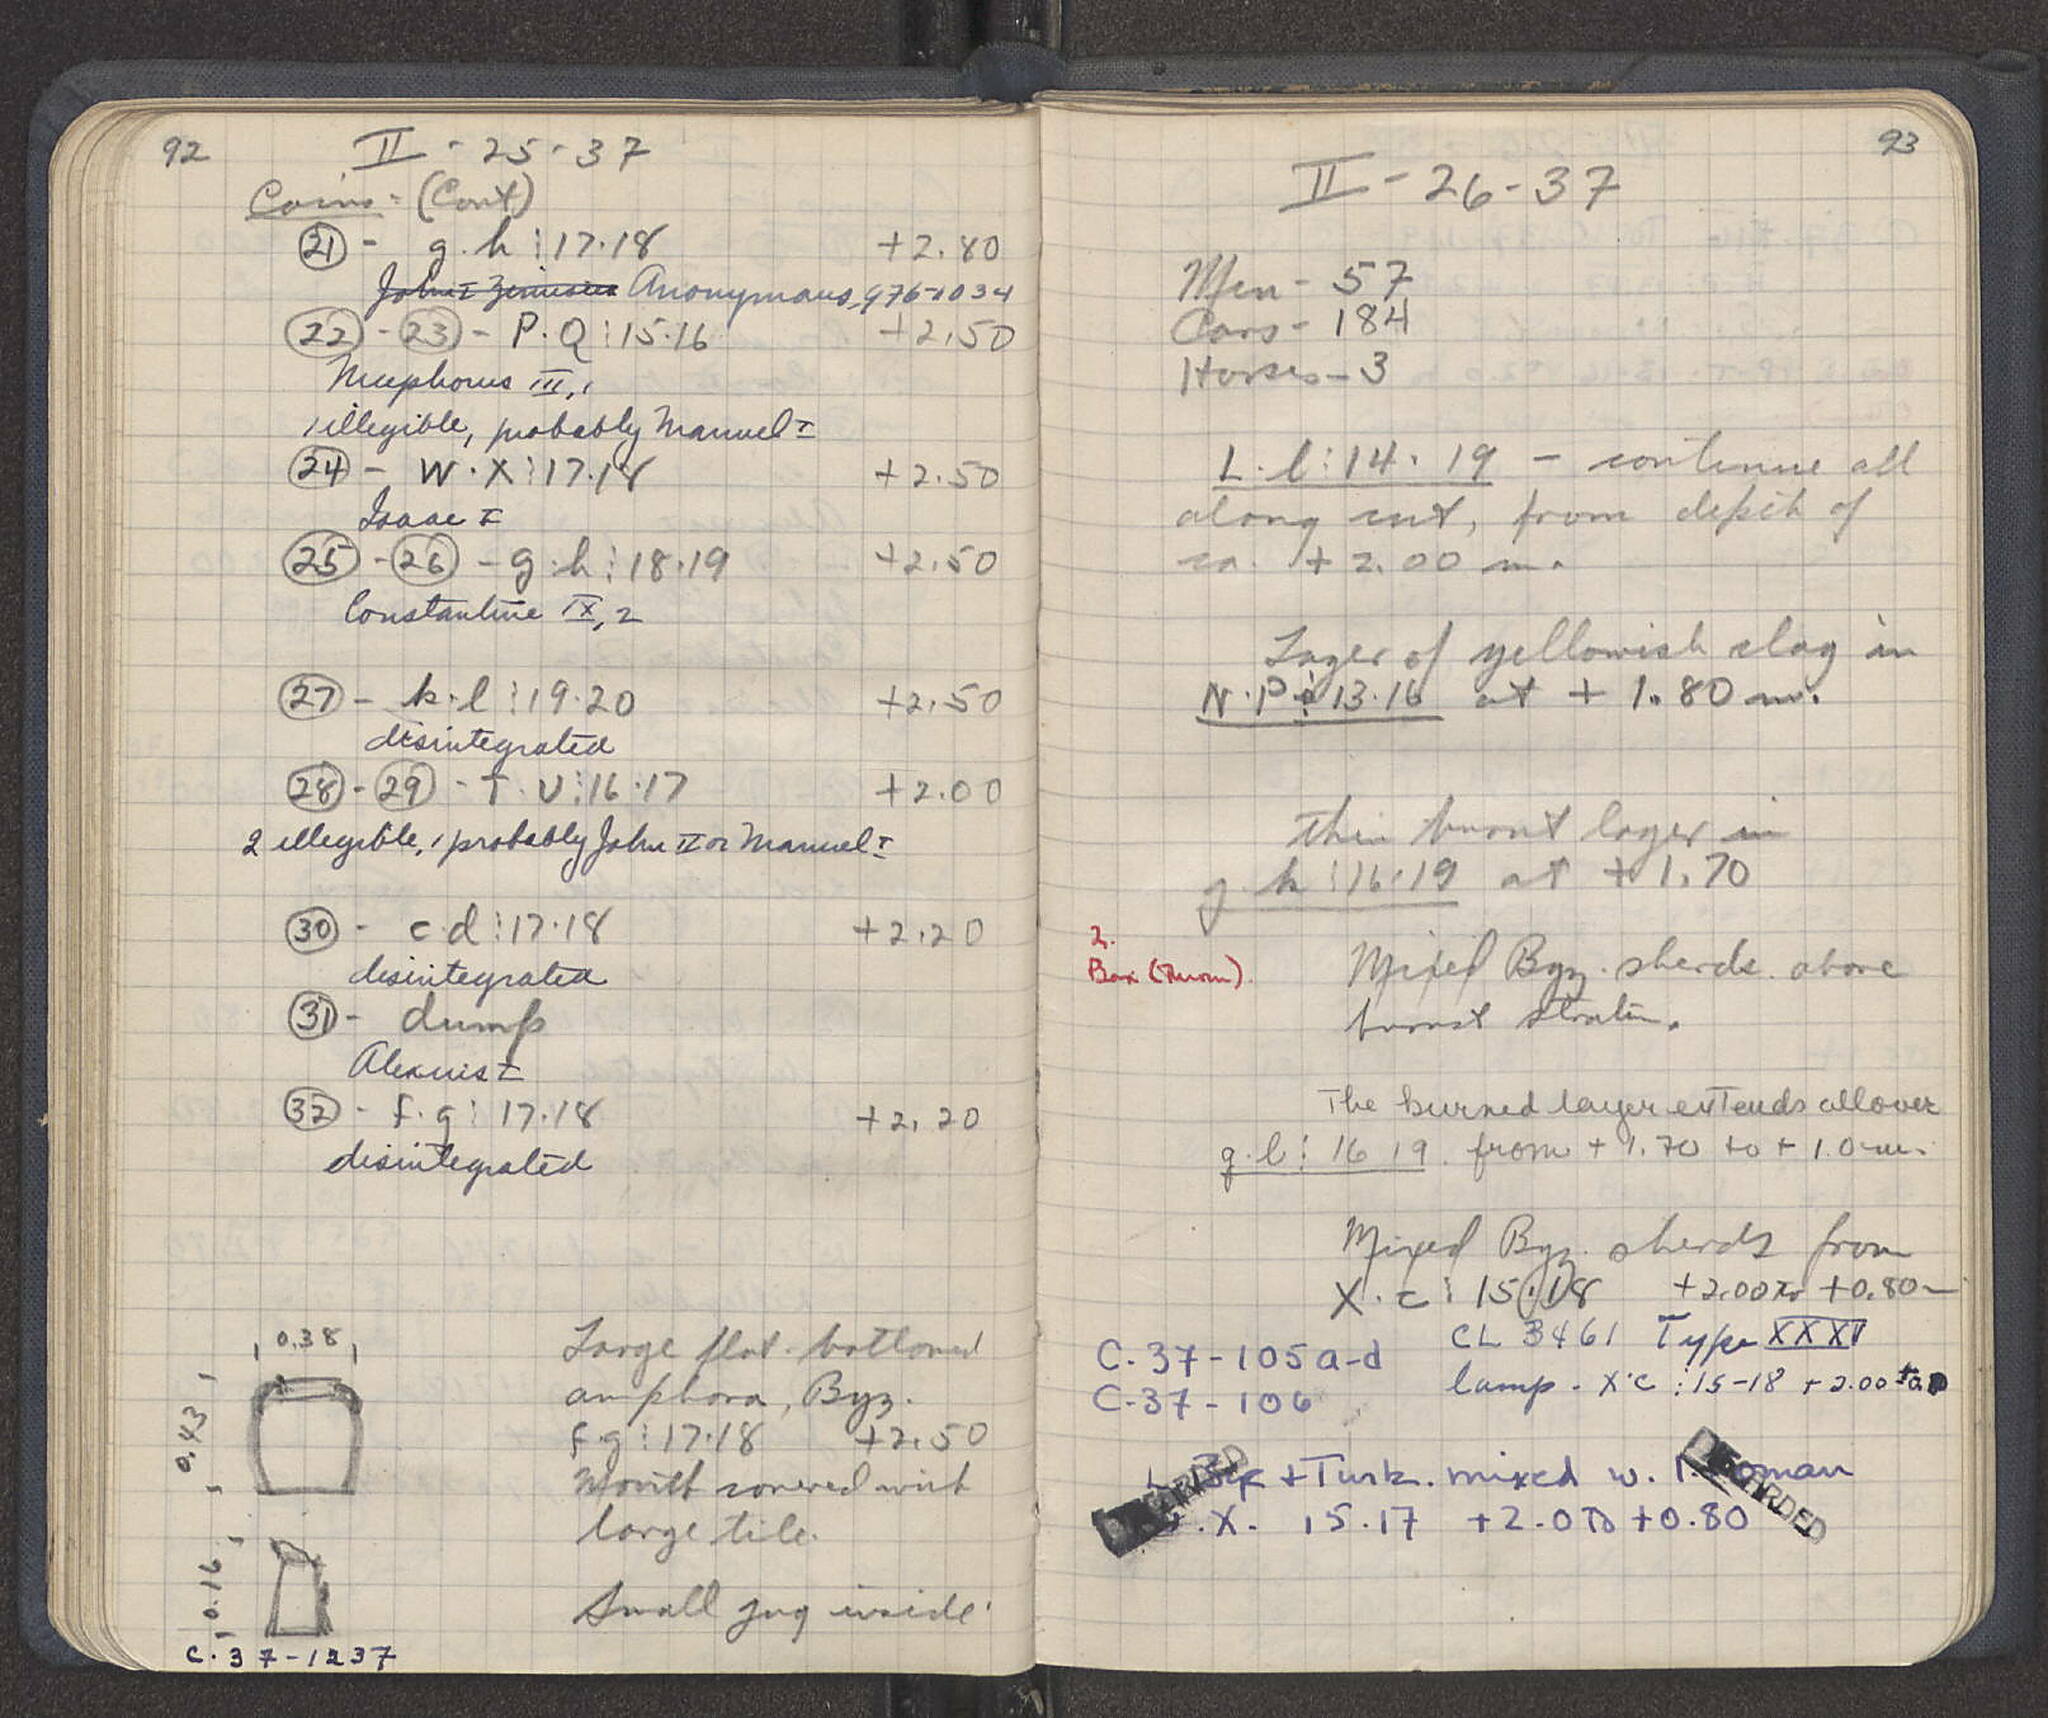 92
II - 25 - 37
Coins - (Cont)
21 - g.h : 17.18 +2.80
John I Zimisces Anonymous, 976-1034
22 - 23 - P.Q : 15.16 +2.50
Nicephorus III, 1
1 illegible, probably Manuel I
24 - W.X : 17.18 +2.50
Isaac I
25 - 26 - g.h : 18.19 +2.50
Constantine IX, 2
27 - k.l : 19.20 +2.50
disintegrated
28 - 29 - T.U : 16.17 +2.00
2 illegible, 1 probably John II or Manuel I
30 - c.d : 17.18 +2.20
disintegrated
31 - dump
Alexius I
32 - f.g : 17.18 +2.20
disintegrated
0.38
0.43
Large flat-bottomed
amphora, Byz.
f.g : 17.18 +2.50
Mouth covered with
large tile.
0.16
Small jug inside.
C.37-1237
93
II - 26 - 37
Men - 57
Cars - 184
Horses - 3
L.l : 14.19 - continue all
along cut, from depth of
ca. +2.00 m.
Layer of yellowish slag in
N.P : 13.16 at +1.80 m.
thin burnt layer in
g.h : 16.19 at +1.70
2.
Box
Mixed Byz. sherds above
burnt stratum.
The burned layer extends all over
g.l : 16 19. from +1.70 to +1.0 m.
Mixed Byz. sherds from
X.c : 15.18 +2.00 to +0.80 m
C.37-105a-d
C-37-106
CL 3461 Type XXXI
lamp - X.c : 15-18 +2.00 to
L. Byz + Turk. mixed w. Roman
.X. 15.17 +2.0 to +0.80